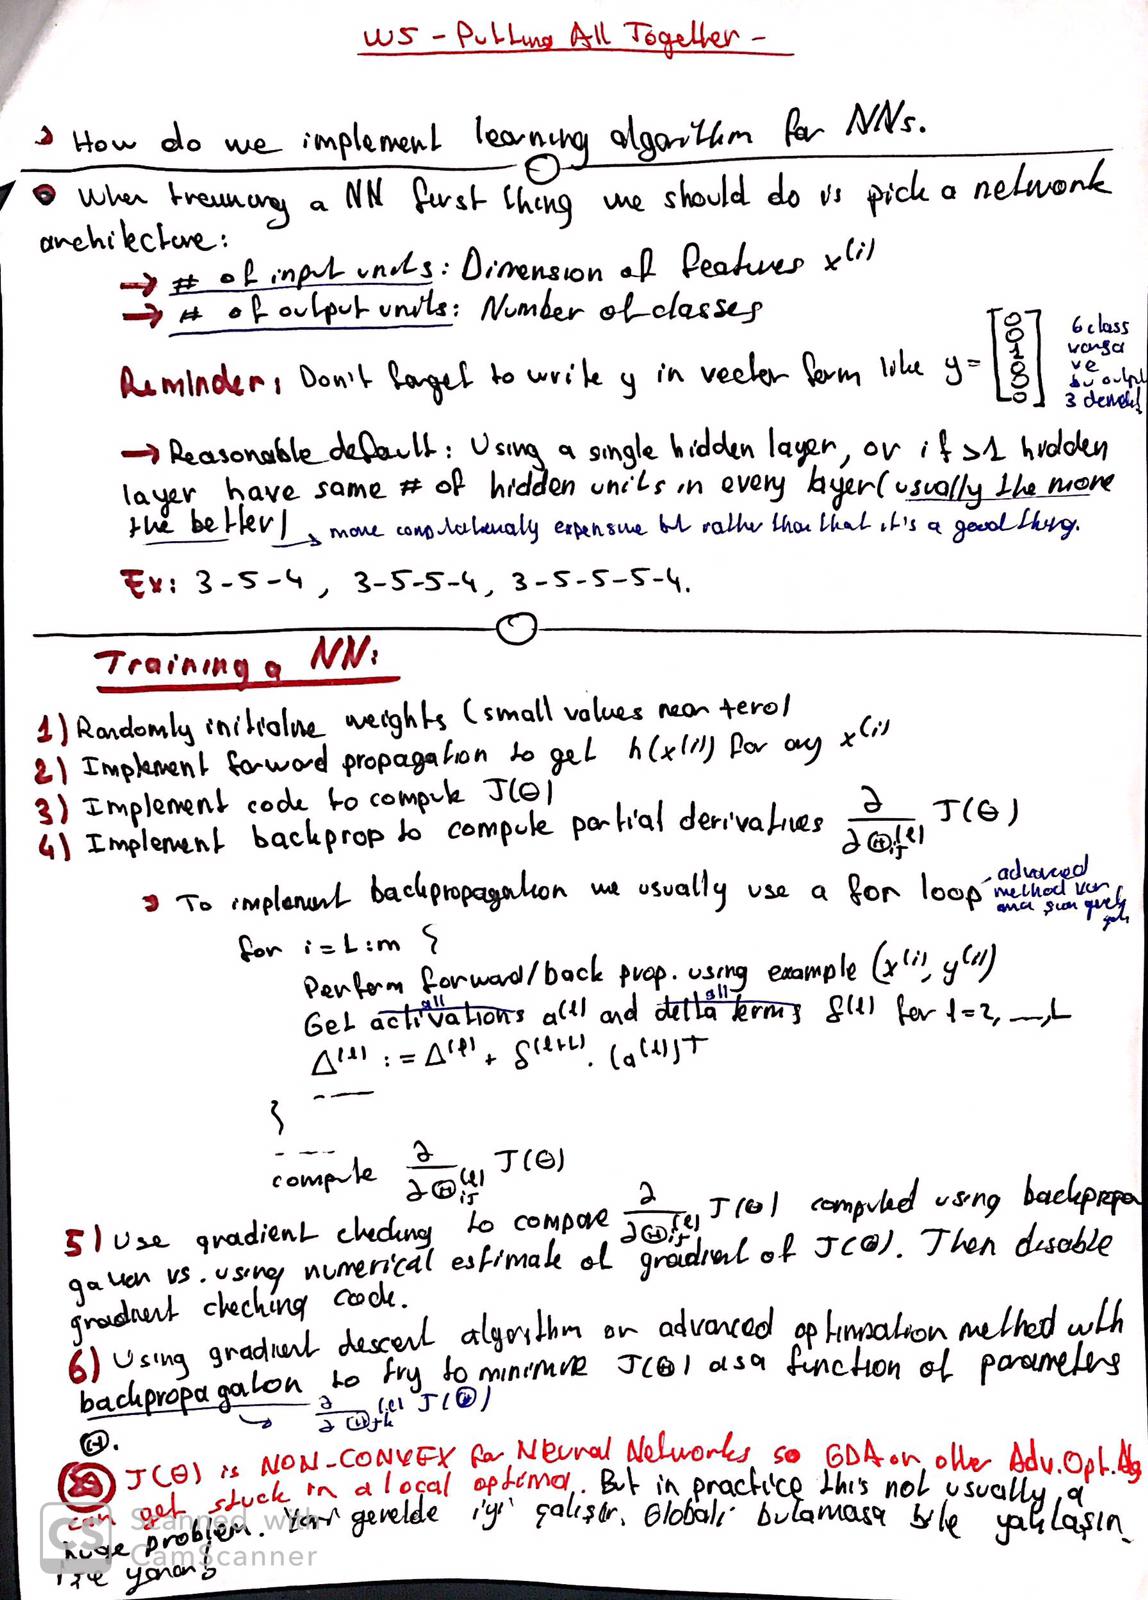 W5 - Putting All Together -
How do we implement learning algorithm for NNs.
When training a NN first thing we should do is pick a network
architecture:
→ # of input units: Dimension of features x^(i)
→ # of output units: Number of classes
Reminder: Don't forget to write y in vector form like y = [0 0 1 0 0 0]
6 class
varsa
ve
bu output
3 demek!
→ Reasonable default: Using a single hidden layer, or if >1 hidden
layer have same # of hidden units in every layer (usually the more
the better)
→ more computationaly expensive but rather than that it's a good thing.
Ex: 3-5-4, 3-5-5-4, 3-5-5-5-4.
Training a NN:
1) Randomly initialize weights (small values near zero)
2) Implement forward propagation to get h(x^(i)) for any x^(i)
3) Implement code to compute J(Θ)
4) Implement backprop to compute partial derivatives ∂/∂Θ_ij^(l) J(Θ)
To implement backpropagation we usually use a for loop
advanced
method var
ama
for i=1:m {
Perform forward/back prop. using example (x^(i), y^(i))
all all
Get activations a^(l) and delta terms δ^(l) for l=2, ..., L
Δ^(l) := Δ^(l) + δ^(l+1) . (a^(l))^T
}
compute ∂/∂Θ_ij^(l) J(Θ)
5) Use gradient checking to compare ∂/∂Θ_ij^(l) J(Θ) computed using backpropa
gation vs. using numerical estimate of gradient of J(Θ). Then disable
gradient checking code.
6) Using gradient descent algorithm or advanced optimization method with
backpropagation to try to minimize J(Θ) as a function of parameters
→ ∂/∂Θ_jk^(l) J(Θ)
Θ.
J(Θ) is NON-CONVEX for Neural Networks so GDA or other Adv.Opt.Alg
can get stuck in a local optima. But in practice this not usually a
huge problem. Yani genelde iyi çalışır. Globali bulamasa bile yaklaşır.
CS Scanned with
CamScanner